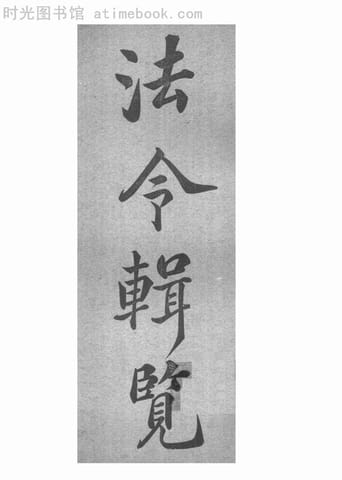 时光图书馆 atimebook.com
法令輯覽